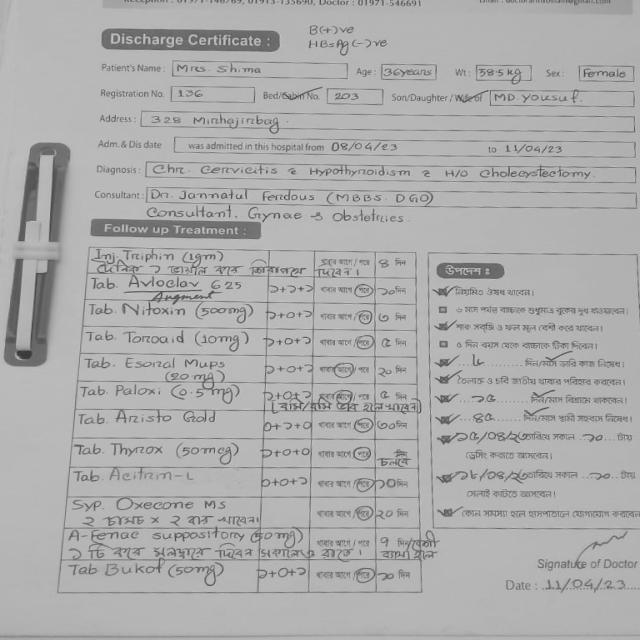 Reception : 01971-146769, 01913-135690, Doctor : 01971-546691
B(+)ve
Discharge Certificate :
HBsAg(-)ve
Patient's Name : Mrs. Shima Age : 36years Wt : 58.5kg Sex : Female
Registration No. 136 Bed/Cabin No. 203 Son/Daughter/Wife of MD. Yousuf.
Address : 328 Minhajinbag.
Adm. & Dis date was admitted in this hospital from 08/04/23 to 11/04/23
Diagnosis : Chr. Cervicitis c Hypothyroidism c H/O Cholecystectomy.
Consultant : Dr. Jannatul Ferdous (MBBS. DGO)
Consultant. Gynae & Obstetrics.
Follow up Treatment :
Inj. Triphin (1gm) খাবার আগে/পরে ৪ দিন
দিবেন।
Tab. Avloclav 625 ১+১+১ খাবার আগে/পরে ১০ দিন
Augment
Tab. Nitoxin (500mg) ১+০+১ খাবার আগে/পরে ৩ দিন
Tab. Torcaid (10mg) ১+০+১ খাবার আগে/পরে ৫ দিন
Tab. Esoral Mups ১+০+১ খাবার আগে/পরে ২০ দিন
(20mg)
Tab. Paloxi (0.5mg) ১+০+১ খাবার আগে/পরে ৫ দিন
Tab. Aristo Gold ০+১+০ খাবার আগে/পরে ৩০ দিন
Tab. Thyrox (50mcg) ১+০+০ খাবার আগে/পরে চলবে
Tab. Acitrin-L ১+০+১ খাবার আগে/পরে ১০ দিন
Syp. Oxecone MS খাবার আগে/পরে ২০ দিন
২ চামচ × ২ বার খাবেন।
A-Fenac suppository (50mg) খাবার আগে/পরে ৭ দিন
১ টি করে মলদ্বারে দিবেন সকালে ও রাতে।
Tab Bukof (50mg) ১+০+১ খাবার আগে/পরে ১০ দিন
উপদেশ :
নিয়মিত ঔষধ খাবেন।
৬ মাস পর্যন্ত বাচ্চাকে শুধুমাত্র বুকের দুধ খাওয়াবেন।
শাক সব্জি ও ফল মূল বেশী করে খাবেন।
৫ দিন বয়স থেকে বাচ্চাকে টিকা দিবেন।
দিন/মাস ভারি কাজ নিষেধ।
তৈলাক্ত ও চর্বি জাতীয় খাবার পরিহার করবেন।
১৫ দিন/মাস বিশ্রামে থাকবেন।
৪৫ দিন/মাস স্বামী সহবাস নিষেধ।
১৫/০৪/২৩ তারিখে সকাল ১০ টায়
ড্রেসিং করাতে আসবেন।
১৮/০৪/২৩ তারিখে সকাল ১০ টায়
সেলাই কাটতে আসবেন।
কোন সমস্যা হলে হাসপাতালে যোগাযোগ করবেন
Signature of Doctor
Date : 11/04/23